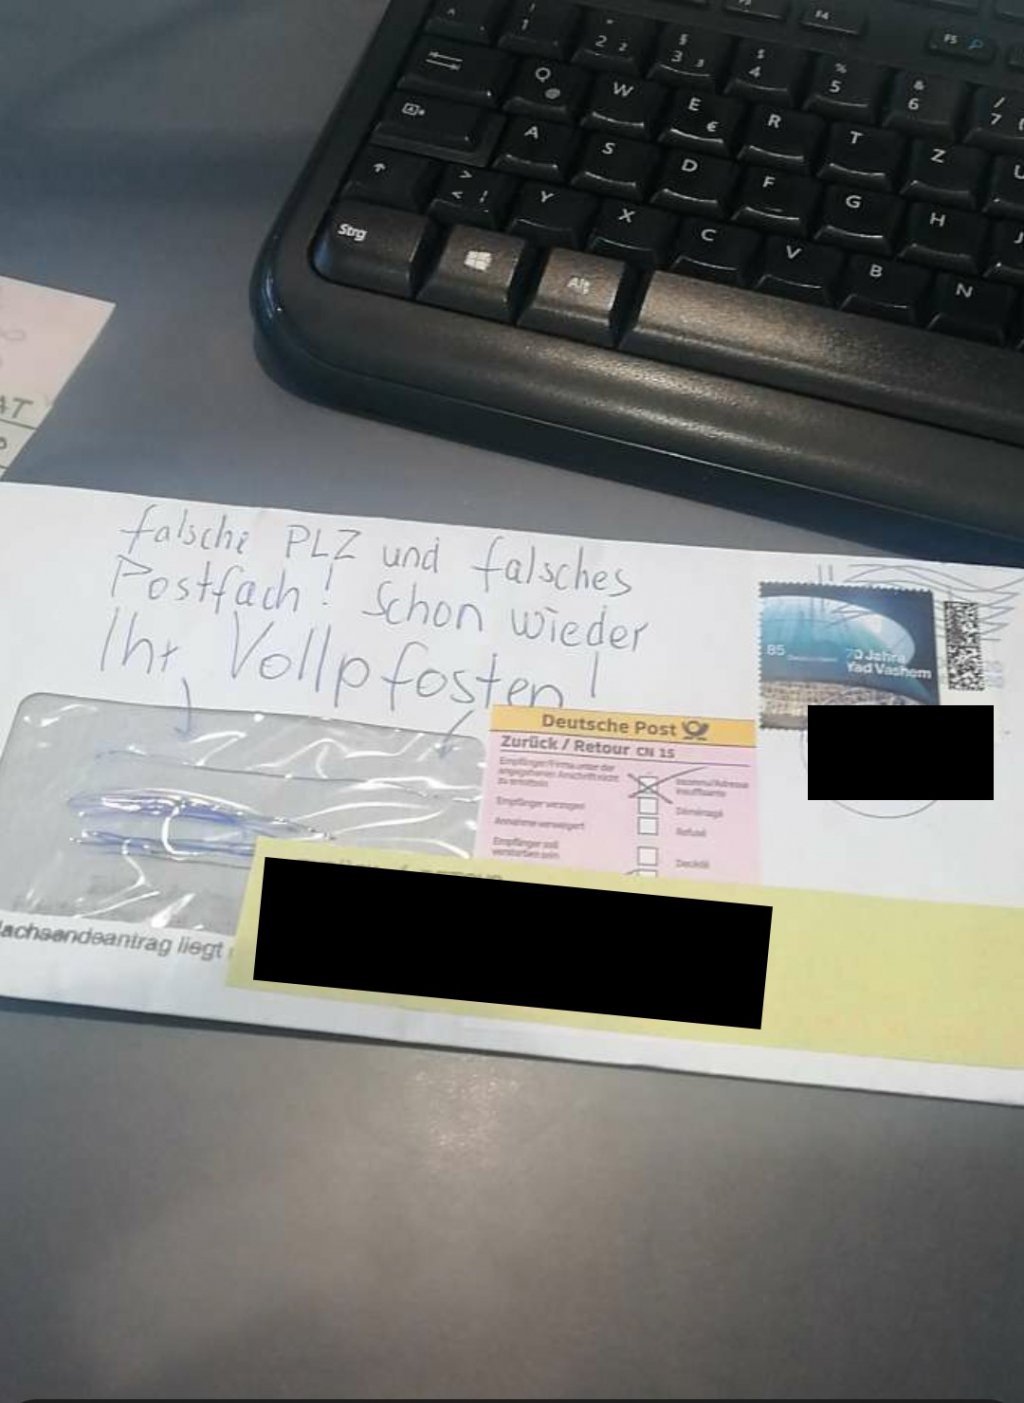 ^
!
1
"
2 ²
§
3 ³
$
4
%
5
&
6
/
7
F4
F5
Q @
W
E €
R
T
Z
U
A
S
D
F
G
H
J
>
< |
Y
X
C
V
B
N
Strg
Alt
AT
falsche PLZ und falsches
Postfach! Schon wieder
Ihr Vollpfosten!
85
70 Jahre
Yad Vashem
Deutsche Post
Zurück / Retour CN 15
Empfänger/Firma unter der
angegebenen Anschrift nicht
zu ermitteln
Inconnu/Adresse
insuffisante
Empfänger verzogen
Déménagé
Annahme verweigert
Refusé
Empfänger soll
verstorben sein
Décédé
Nachsendeantrag liegt